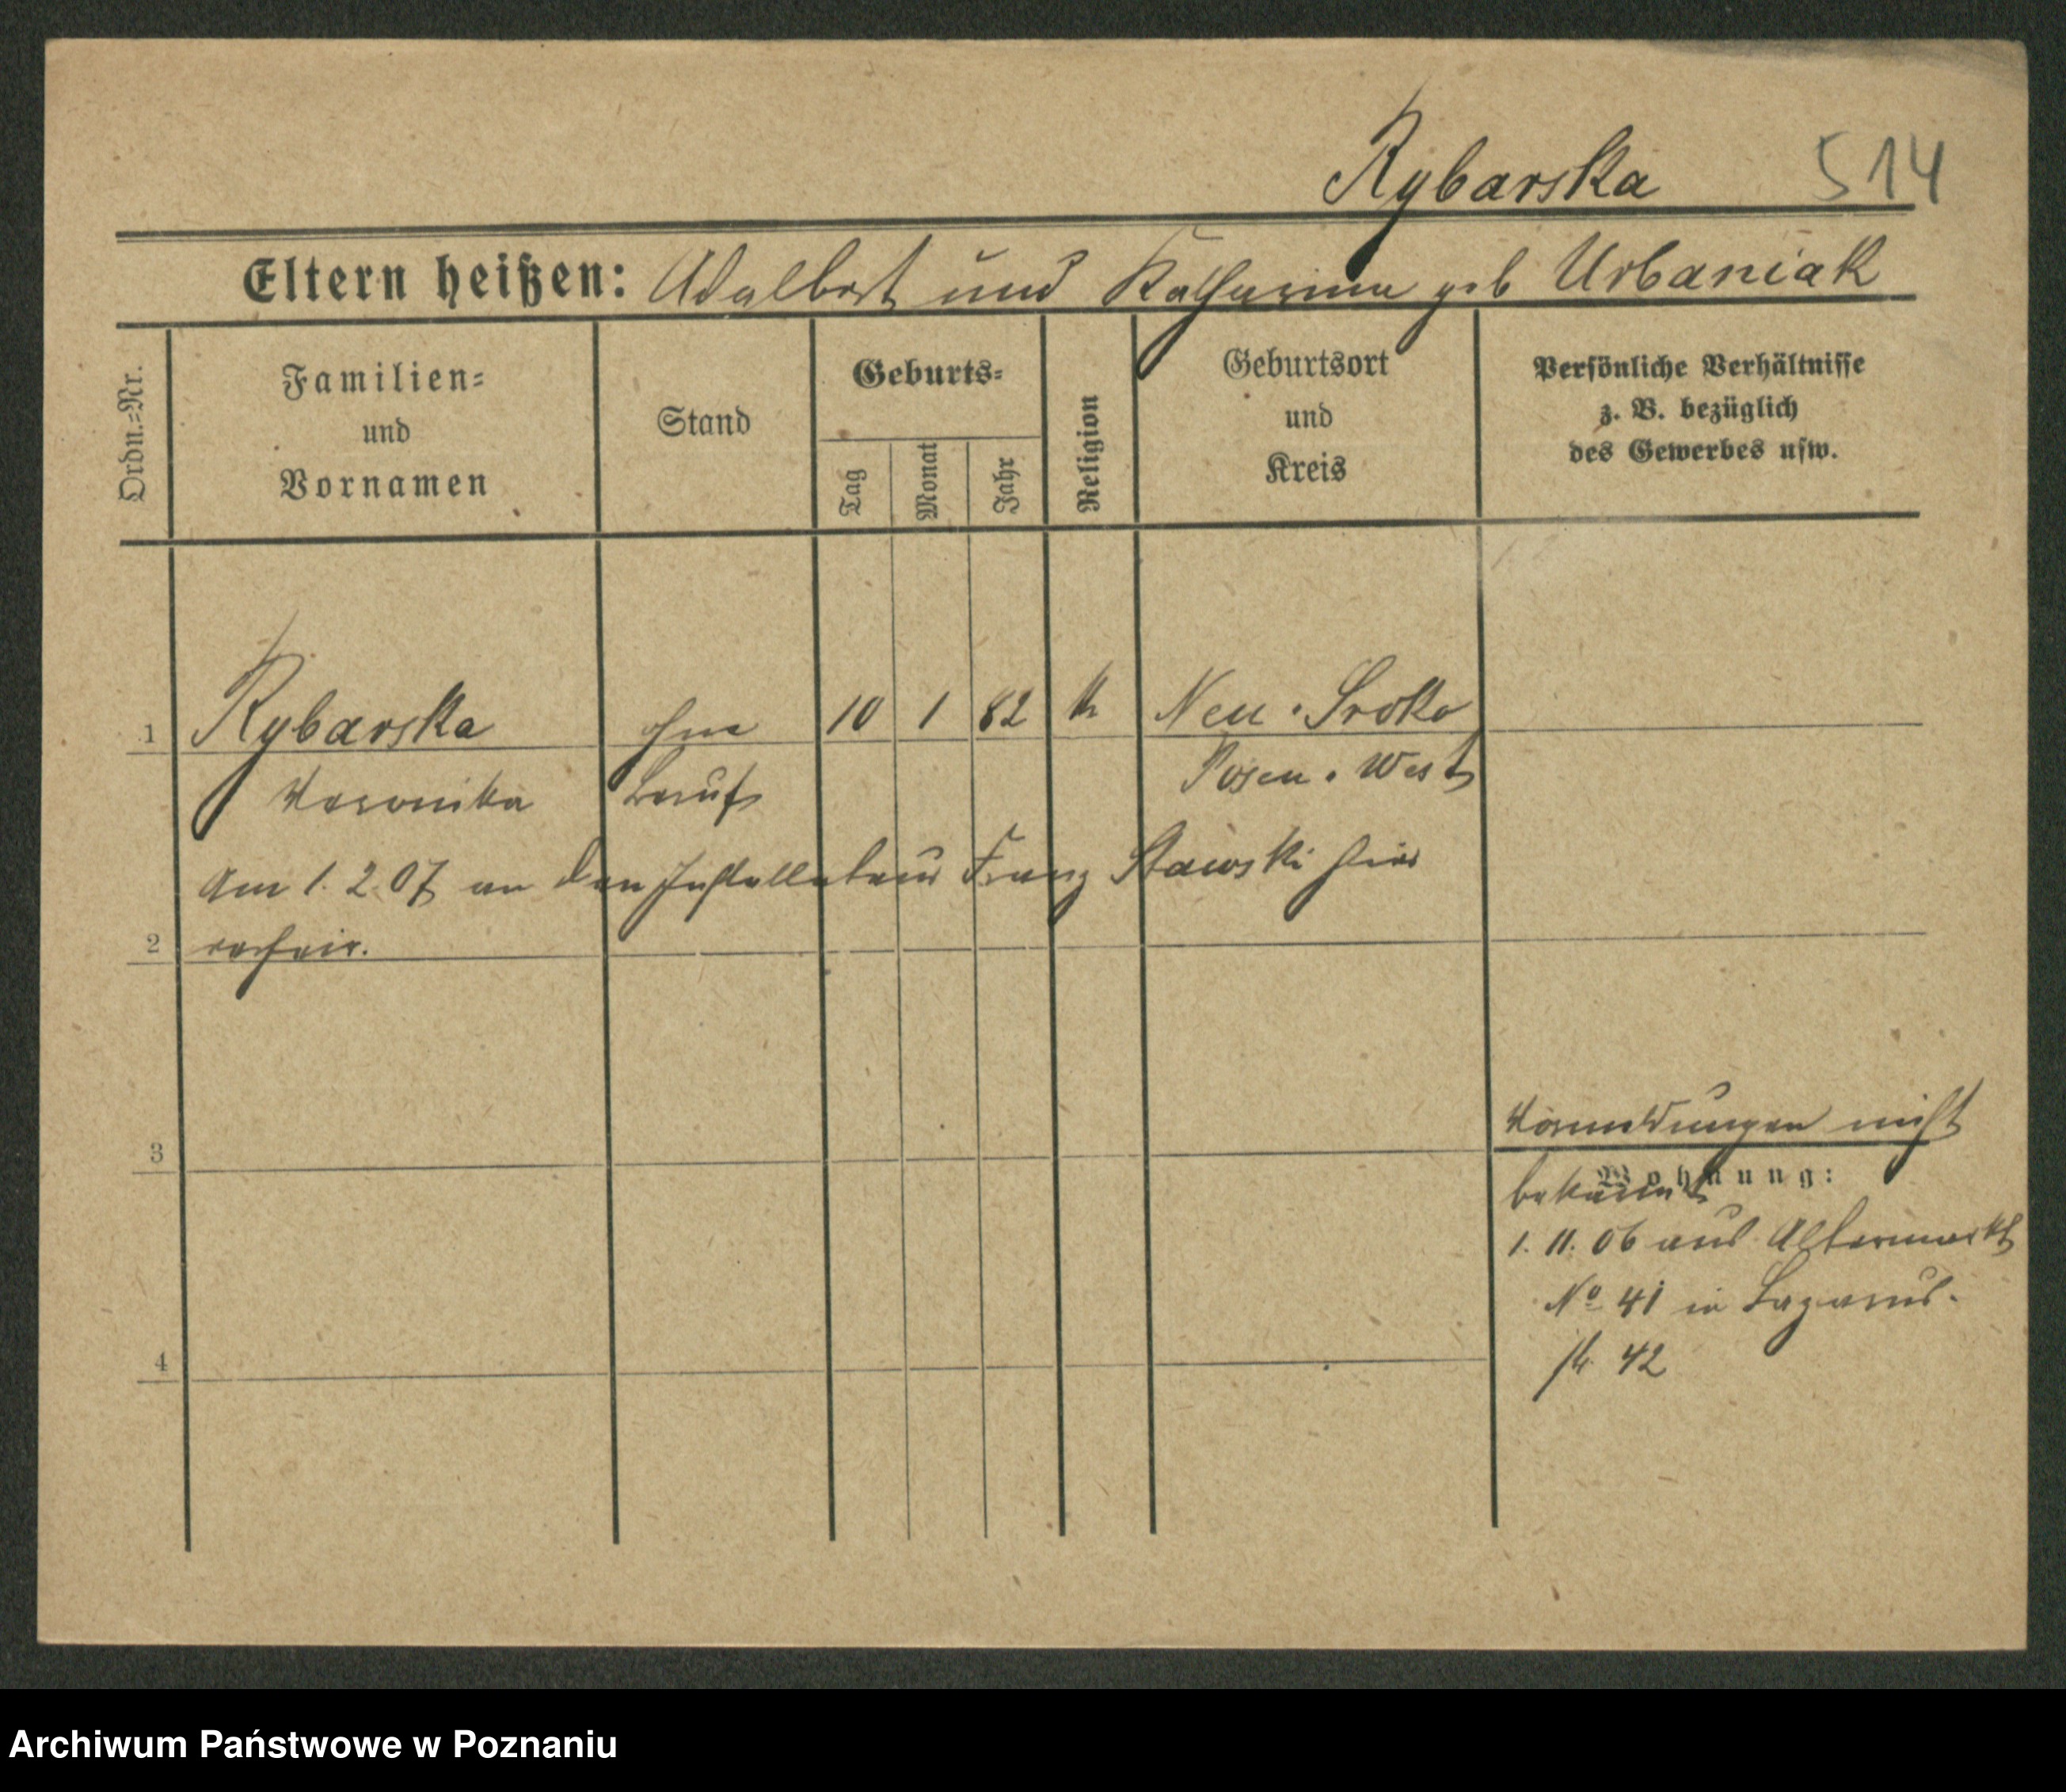 Rybarska 514
Eltern heißen: Adalbert und Katharina geb Urbaniak
Ordn.=Nr.
Familien=
und
Vornamen
Stand
Geburts=
Tag
Monat
Jahr
Religion
Geburtsort
und
Kreis
Persönliche Verhältnisse
z. B. bezüglich
des Gewerbes usw.
1 Rybarska ohne 10 1 82 k Neu-Sroko
Veronika Beruf Posen-West
Am 1. 2. 07 an den Installateur Franz Stawski hier
2 verheir.
3
Vormeldungen nicht
Wohnung:
bekannt
1. 11. 06 aus Altermarkt
No 41 in Lazarus-
str. 42
4
Archiwum Państwowe w Poznaniu